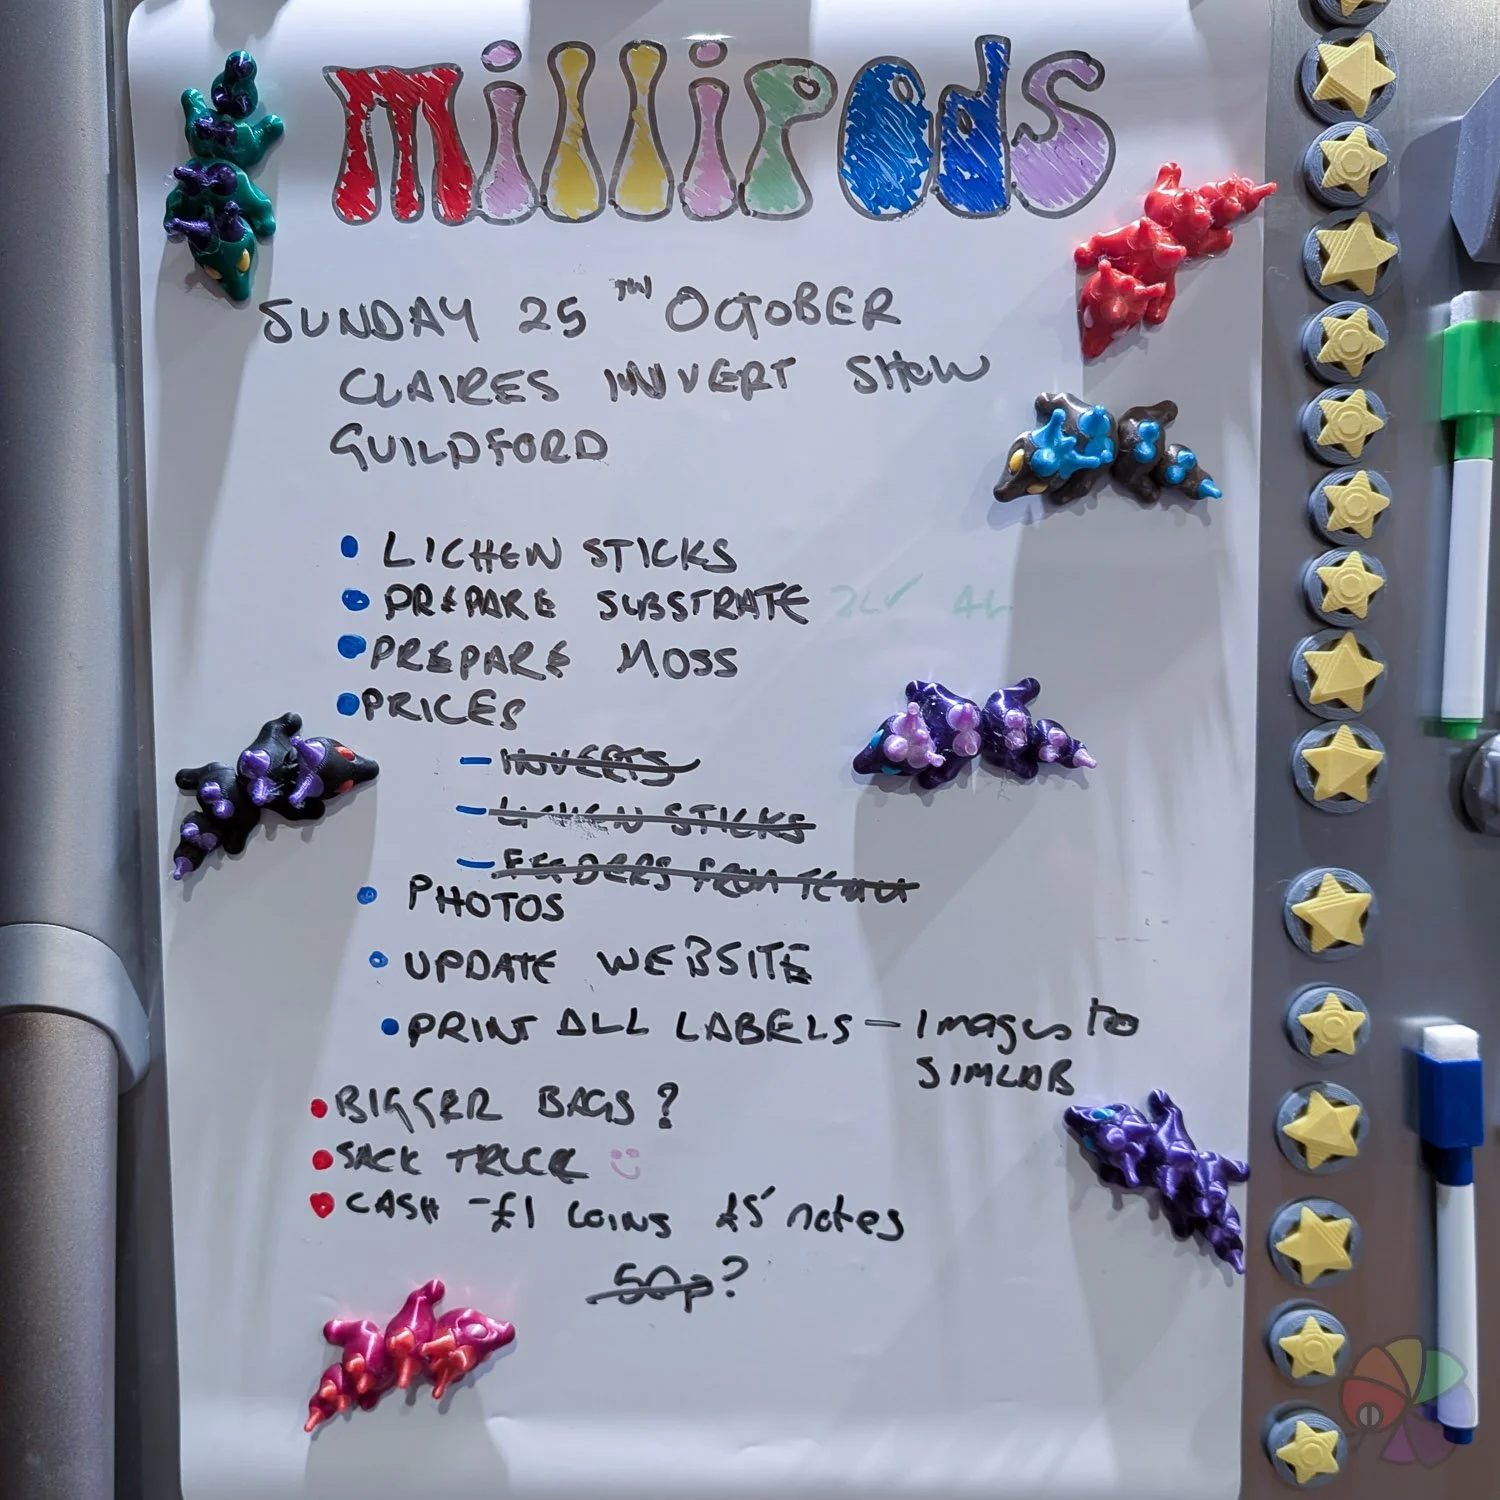 millipods
SUNDAY 25TH OCTOBER
CLAIRES INVERT SHOW
GUILDFORD
• LICHEN STICKS
• PREPARE SUBSTRATE 2L✓ 4L
• PREPARE MOSS
• PRICES
– INVERTS
– LICHEN STICKS
– FEEDERS FROM TEMU
• PHOTOS
• UPDATE WEBSITE
• PRINT ALL LABELS – Images to
SIMLAB
• BIGGER BAGS?
• SACK TRUCK
• CASH – £1 coins £5 notes
50p?